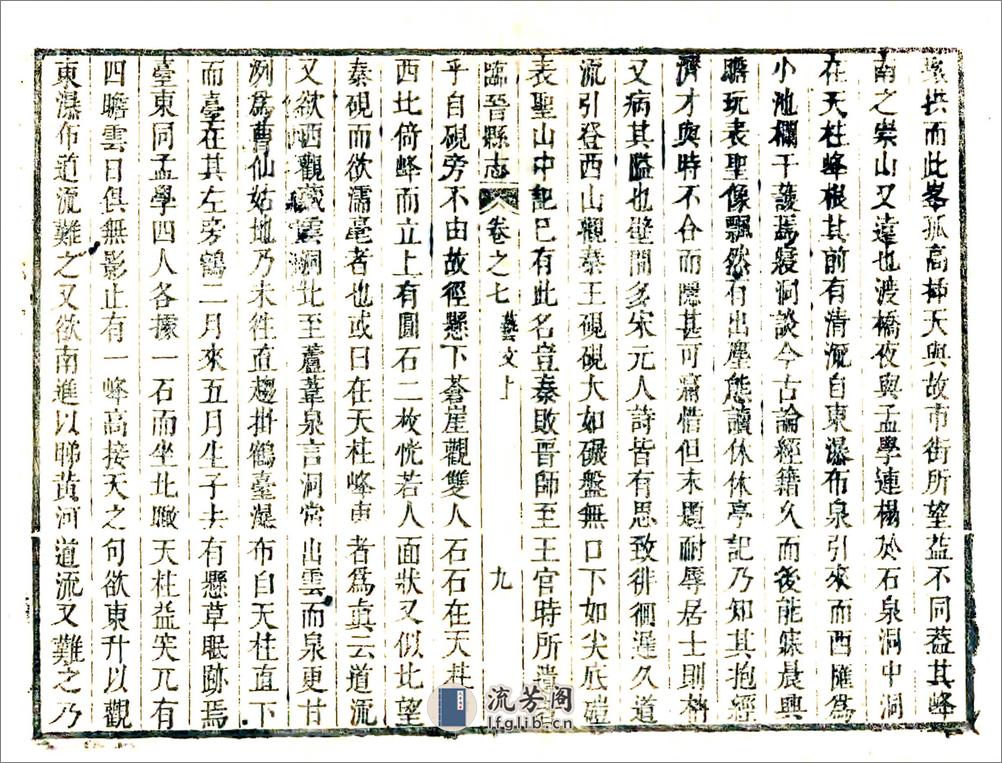 拱而此峯孤高插天與故市街所望益不同葢其峰
南之崇山又遠也渡橋夜與孟學連榻於石泉洞中洞
在天柱峰根其前有清流自東瀑布泉引來而西匯爲
小池欄干護焉寢洞談今古論經籍久而後能寐晨興
瞻玩表聖像飄然有出塵態讀休休亭記乃知其抱經
濟才與時不合而隱甚可痛惜但未題耐辱居士則
又病其隘也壁間多宋元人詩皆有思致徘徊遲久道
流引登西山觀秦王硯硯大如碾盤無口下如尖底磑
表聖山中記已有此名豈秦敗晋師至王官時所遺
臨晉縣志 卷之七 藝文上 九
乎自硯旁不由故徑懸下蒼崖觀雙人石石在天柱
西北倚峰而立上有圓石二枚恍若人面狀又似北望
秦硯而欲濡毫者也或曰在天柱峰東者爲真云道流
又欲西觀藏雲洞北至蘆葦泉言洞常出雲而泉更甘
洌爲曹仙姑地乃未徃直趨掛鶴臺瀑布自天柱直下
而臺在其左旁鶴二月來五月生子去有懸草眠跡焉
臺東同孟學四人各據一石而坐北瞰天柱益突兀有
四瞻雲日俱無影止有一峰高接天之句欲東升以觀
東瀑布道流難之又欲南進以睇黃河道流又難之乃
流芳阁
lfglib.cn